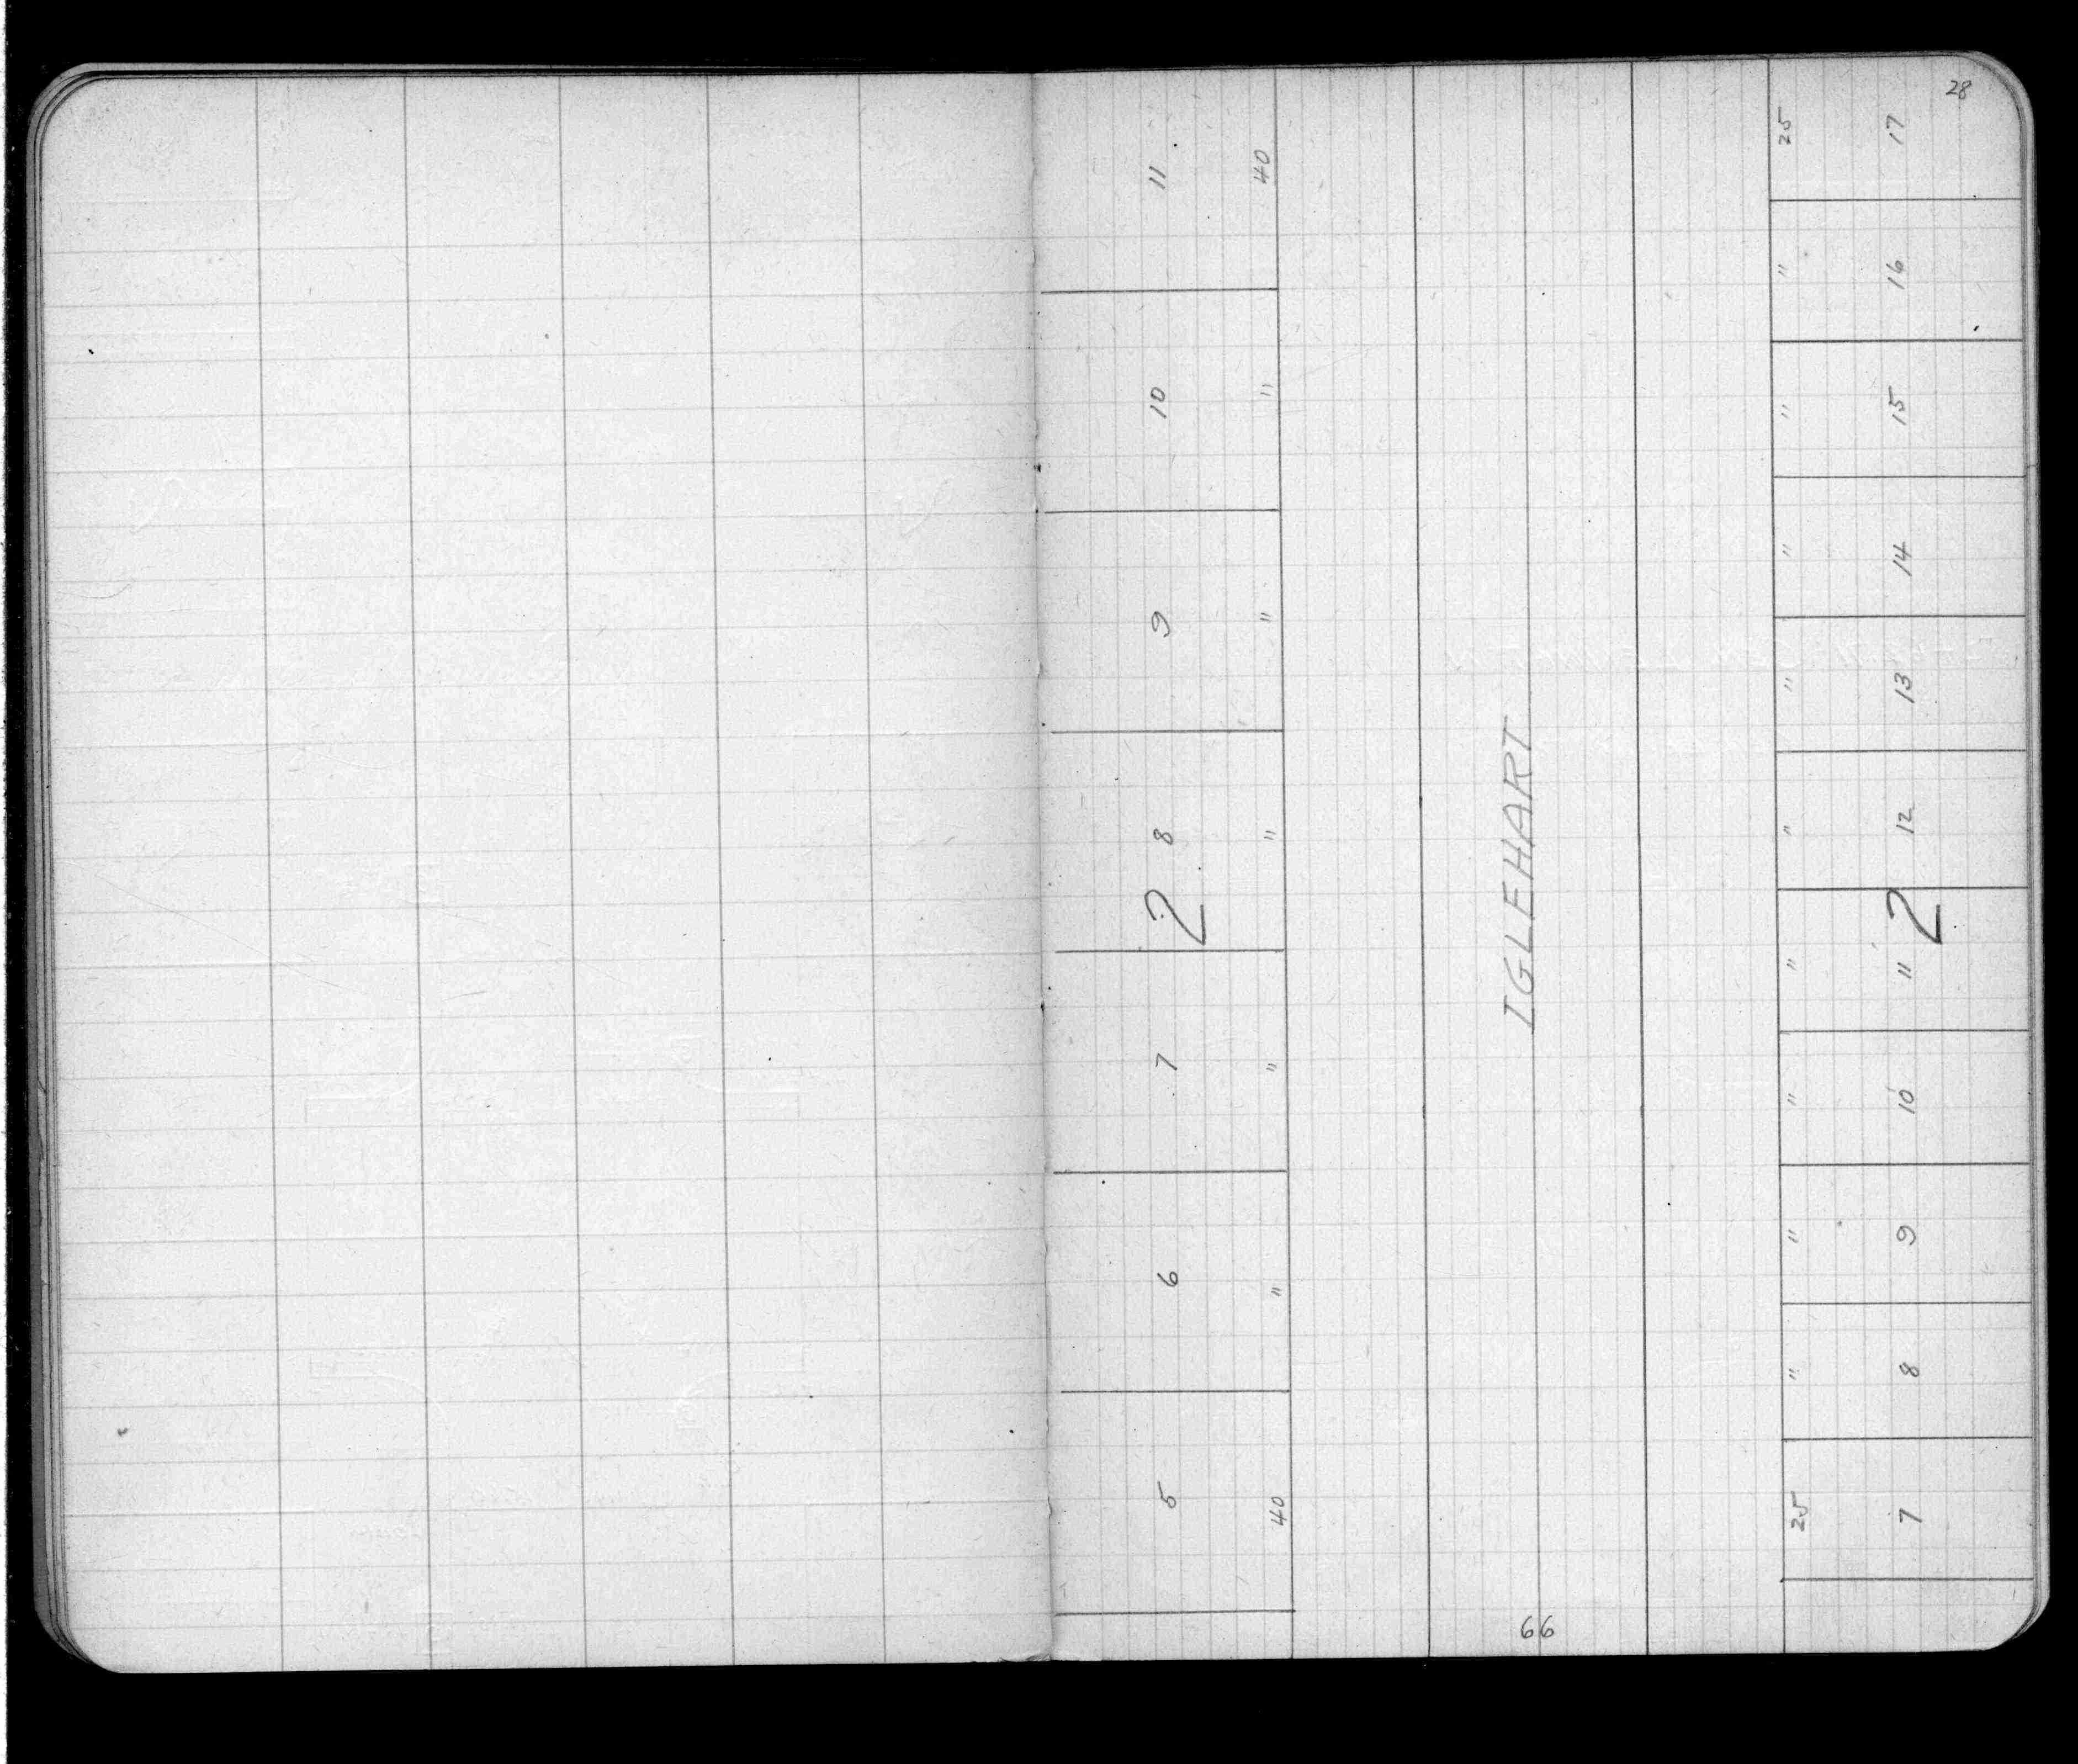 28
11 40
10 "
9 "
8 "
2
7 "
6 "
5 40
IGLEHART
66
25 17
" 16
" 15
" 14
" 13
" 12
2
" 11
" 10
" 9
" 8
25 7